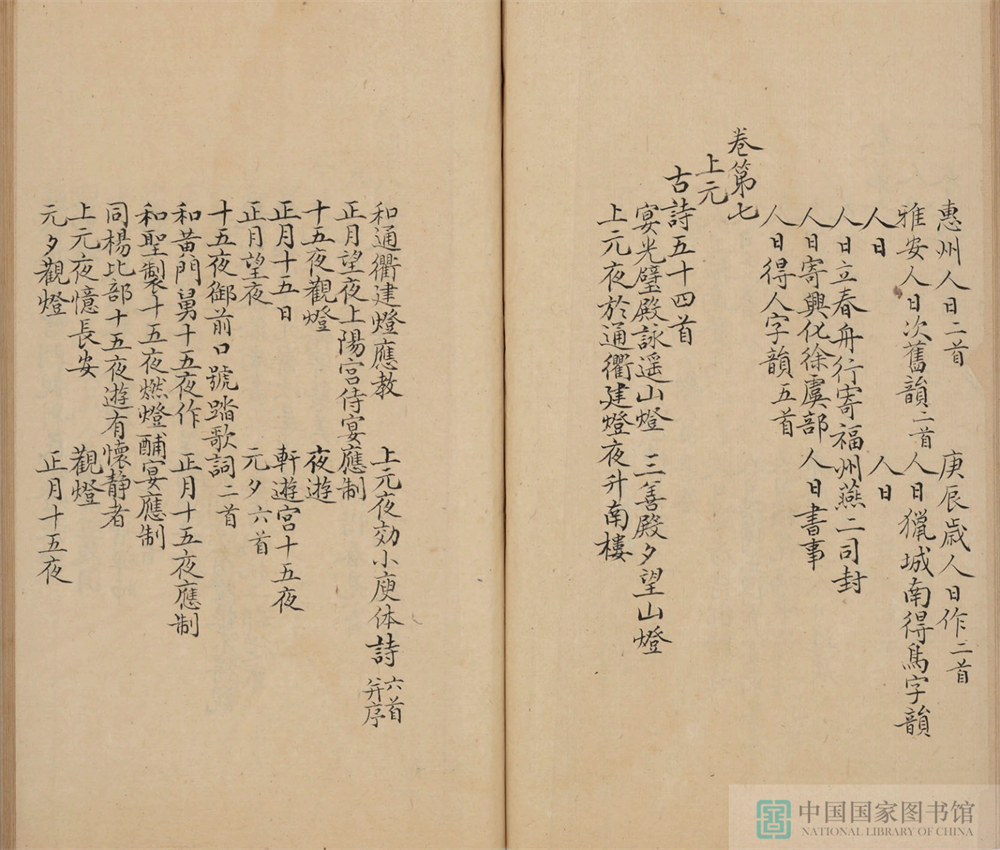 惠州人日二首　庚辰歲人日作二首
雅安人日次舊韻二首　人日獵城南得鳥字韻
人日　人日
人日立春舟行寄福州燕二司封
人日寄興化徐虞部　人日書事
人日得人字韻五首
卷第七
上元
古詩五十四首
宴光璧殿詠遥山燈　三善殿夕望山燈
上元夜於通衢建燈夜升南樓
和通衢建燈應教　上元夜効小庾体詩六首并序
正月望夜上陽宮侍宴應制
十五夜觀燈　夜遊
正月十五日　軒遊宮十五夜
正月望夜　元夕六首
十五夜御前口號踏歌詞二首
和黃門舅十五夜作　正月十五夜應制
和聖製十五夜燃燈酺宴應制
同楊比部十五夜遊有懷靜者
上元夜憶長安　觀燈
元夕觀燈　正月十五夜
中国国家图书馆
NATIONAL LIBRARY OF CHINA